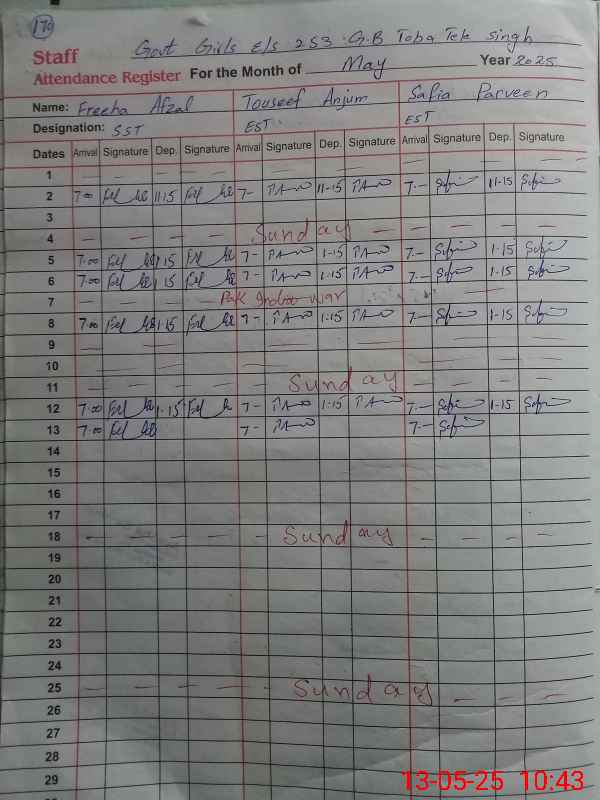 170
Govt Girls E/S 253 G.B Toba Tek Singh
Staff
Attendance Register For the Month of May Year 2025
Name: Freeha Afzal Touseef Anjum Safia Parveen
Designation: SST EST EST
Dates Arrival Signature Dep. Signature Arrival Signature Dep. Signature Arrival Signature Dep. Signature
1
2 7.00 11.15 7- 11-15 7.- 11-15
3
4 Sunday
5 7.00 1.15 7- 1-15 7.- 1-15
6 7.00 1.15 7- 1-15 7.- 1-15
7 Pak war
8 7.00 1.15 7- 1-15 7.- 1-15
9
10
11 Sunday
12 7.00 1.15 7- 1-15 7.- 1-15
13 7.00 7- 7.-
14
15
16
17
18 Sunday
19
20
21
22
23
24
25 Sunday
26
27
28
29
13-05-25 10:43